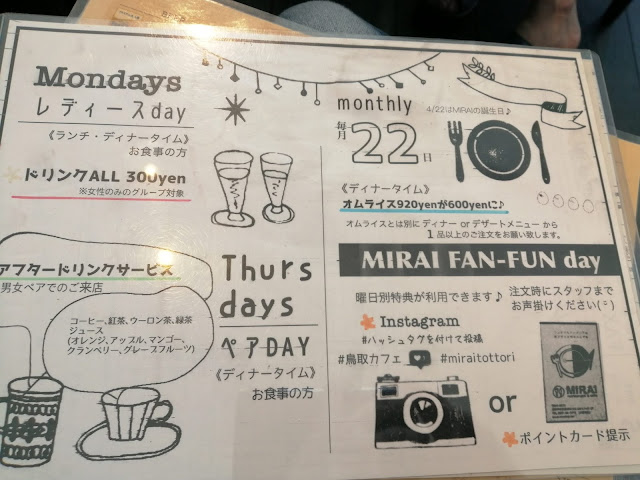 Mondays
レディースday
《ランチ・ディナータイム》
お食事の方
ドリンクALL 300yen
※女性のみのグループ対象
monthly
4/22はMIRAIの誕生日♪
毎月22日
《ディナータイム》
オムライス920yenが600yenに♪
オムライスとは別にディナー or デザートメニュー から
1品以上のご注文をお願い致します。
アフタードリンクサービス
男女ペアでのご来店
コーヒー、紅茶、ウーロン茶、緑茶
ジュース
(オレンジ、アップル、マンゴー、
クランベリー、グレープフルーツ)
Thurs
days
ペアDAY
《ディナータイム》
お食事の方
MIRAI FAN-FUN day
曜日別特典が利用できます♪
注文時にスタッフまで
お声掛けください(¨)
Instagram
#ハッシュタグを付けて投稿
#鳥取カフェ #miraitottori
or
MIRAI
ポイントカード提示